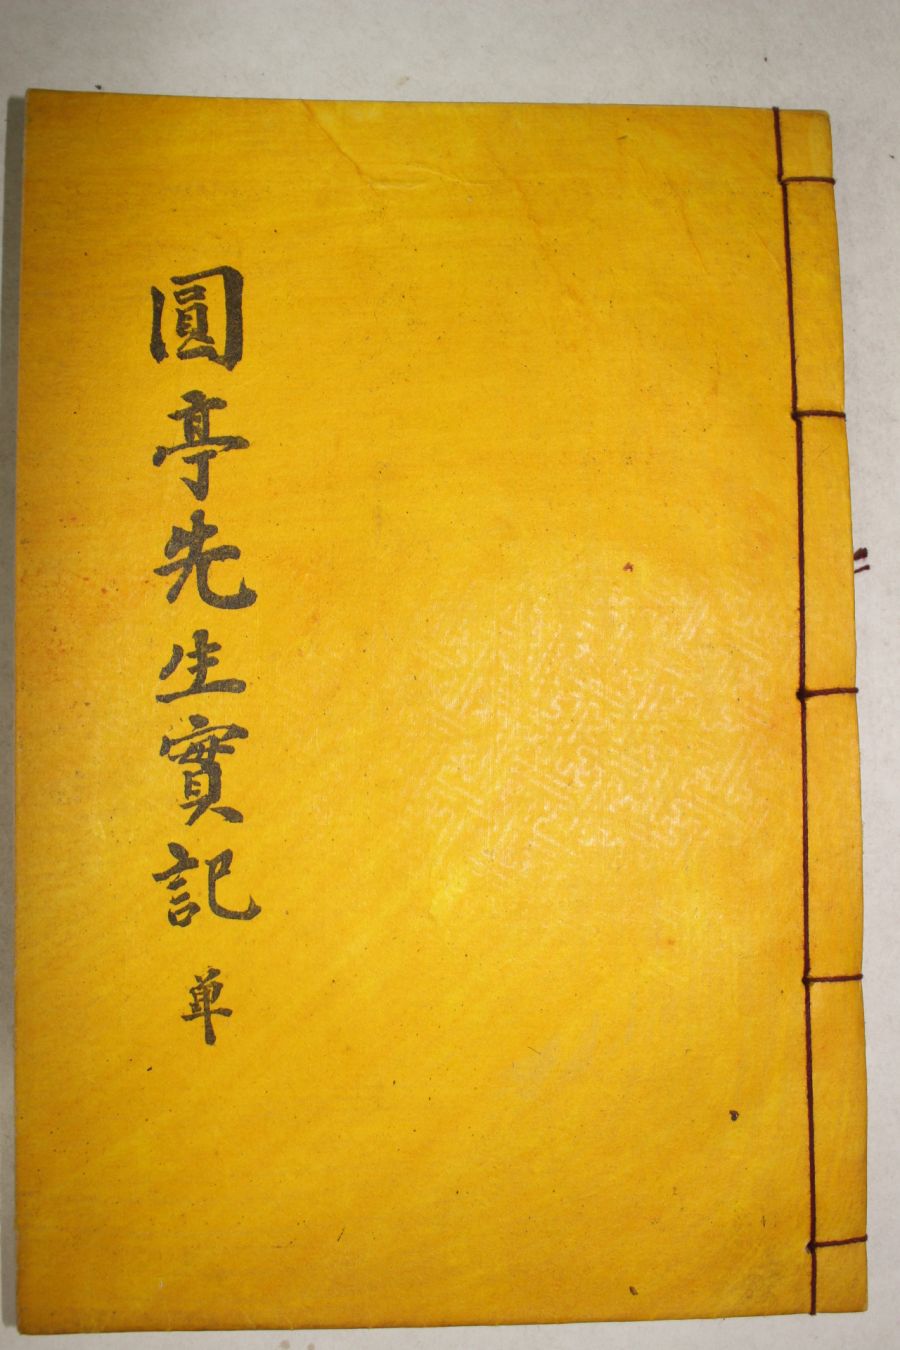 圓亭先生實記 单